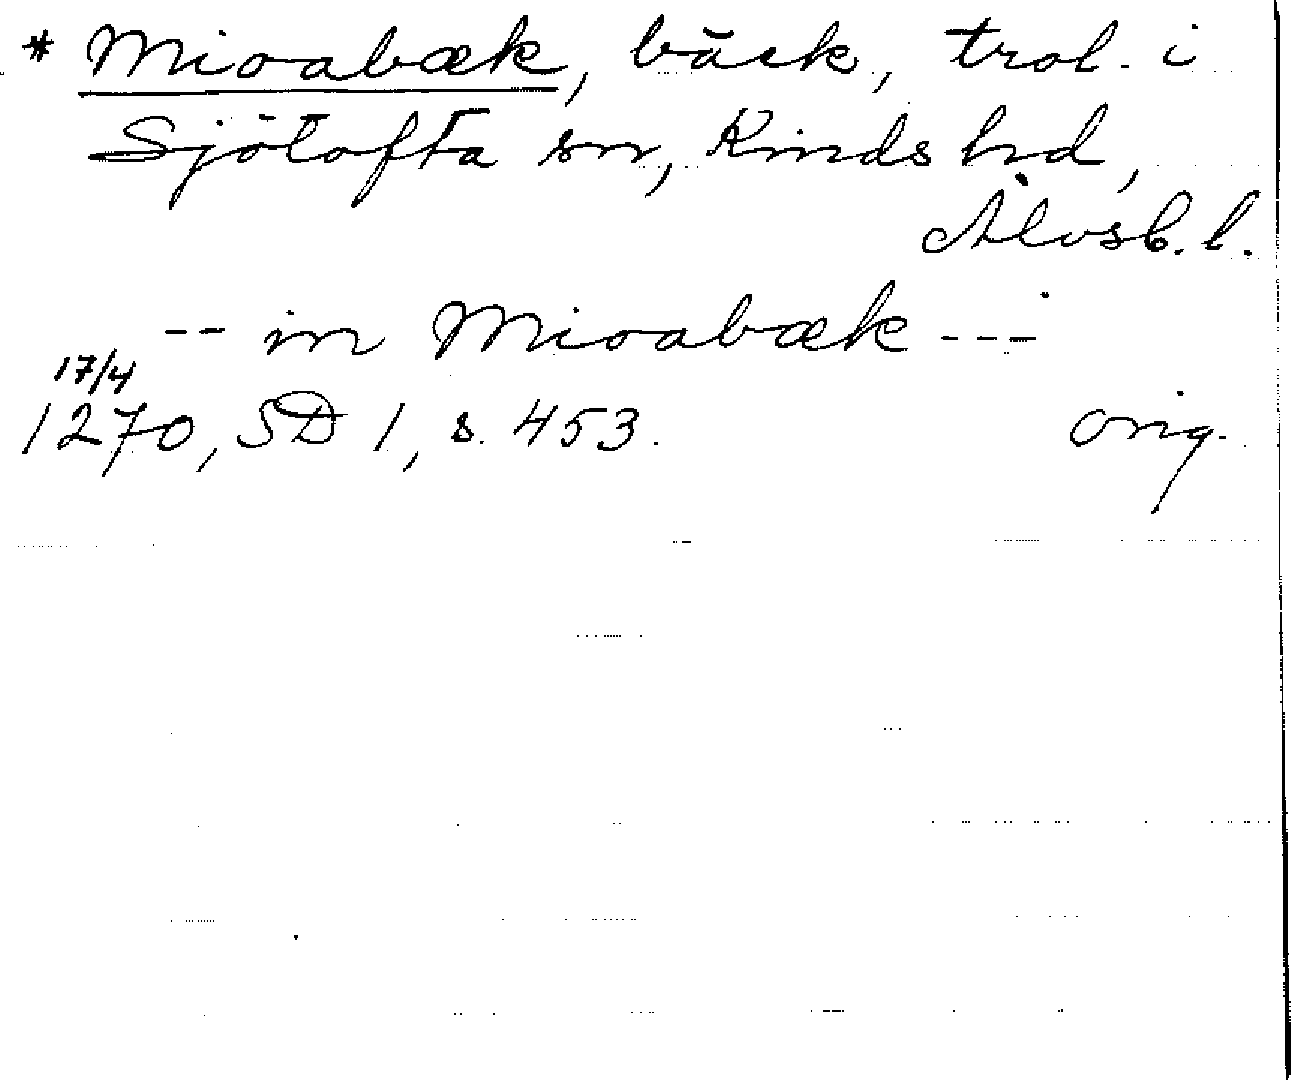 * Mioabæk, bäck, trol. i
Sjötofta sn, Kinds hd,
Älvsb. l.
-- in Mioabæk ---
17/4
1270, SD 1, s. 453. orig.